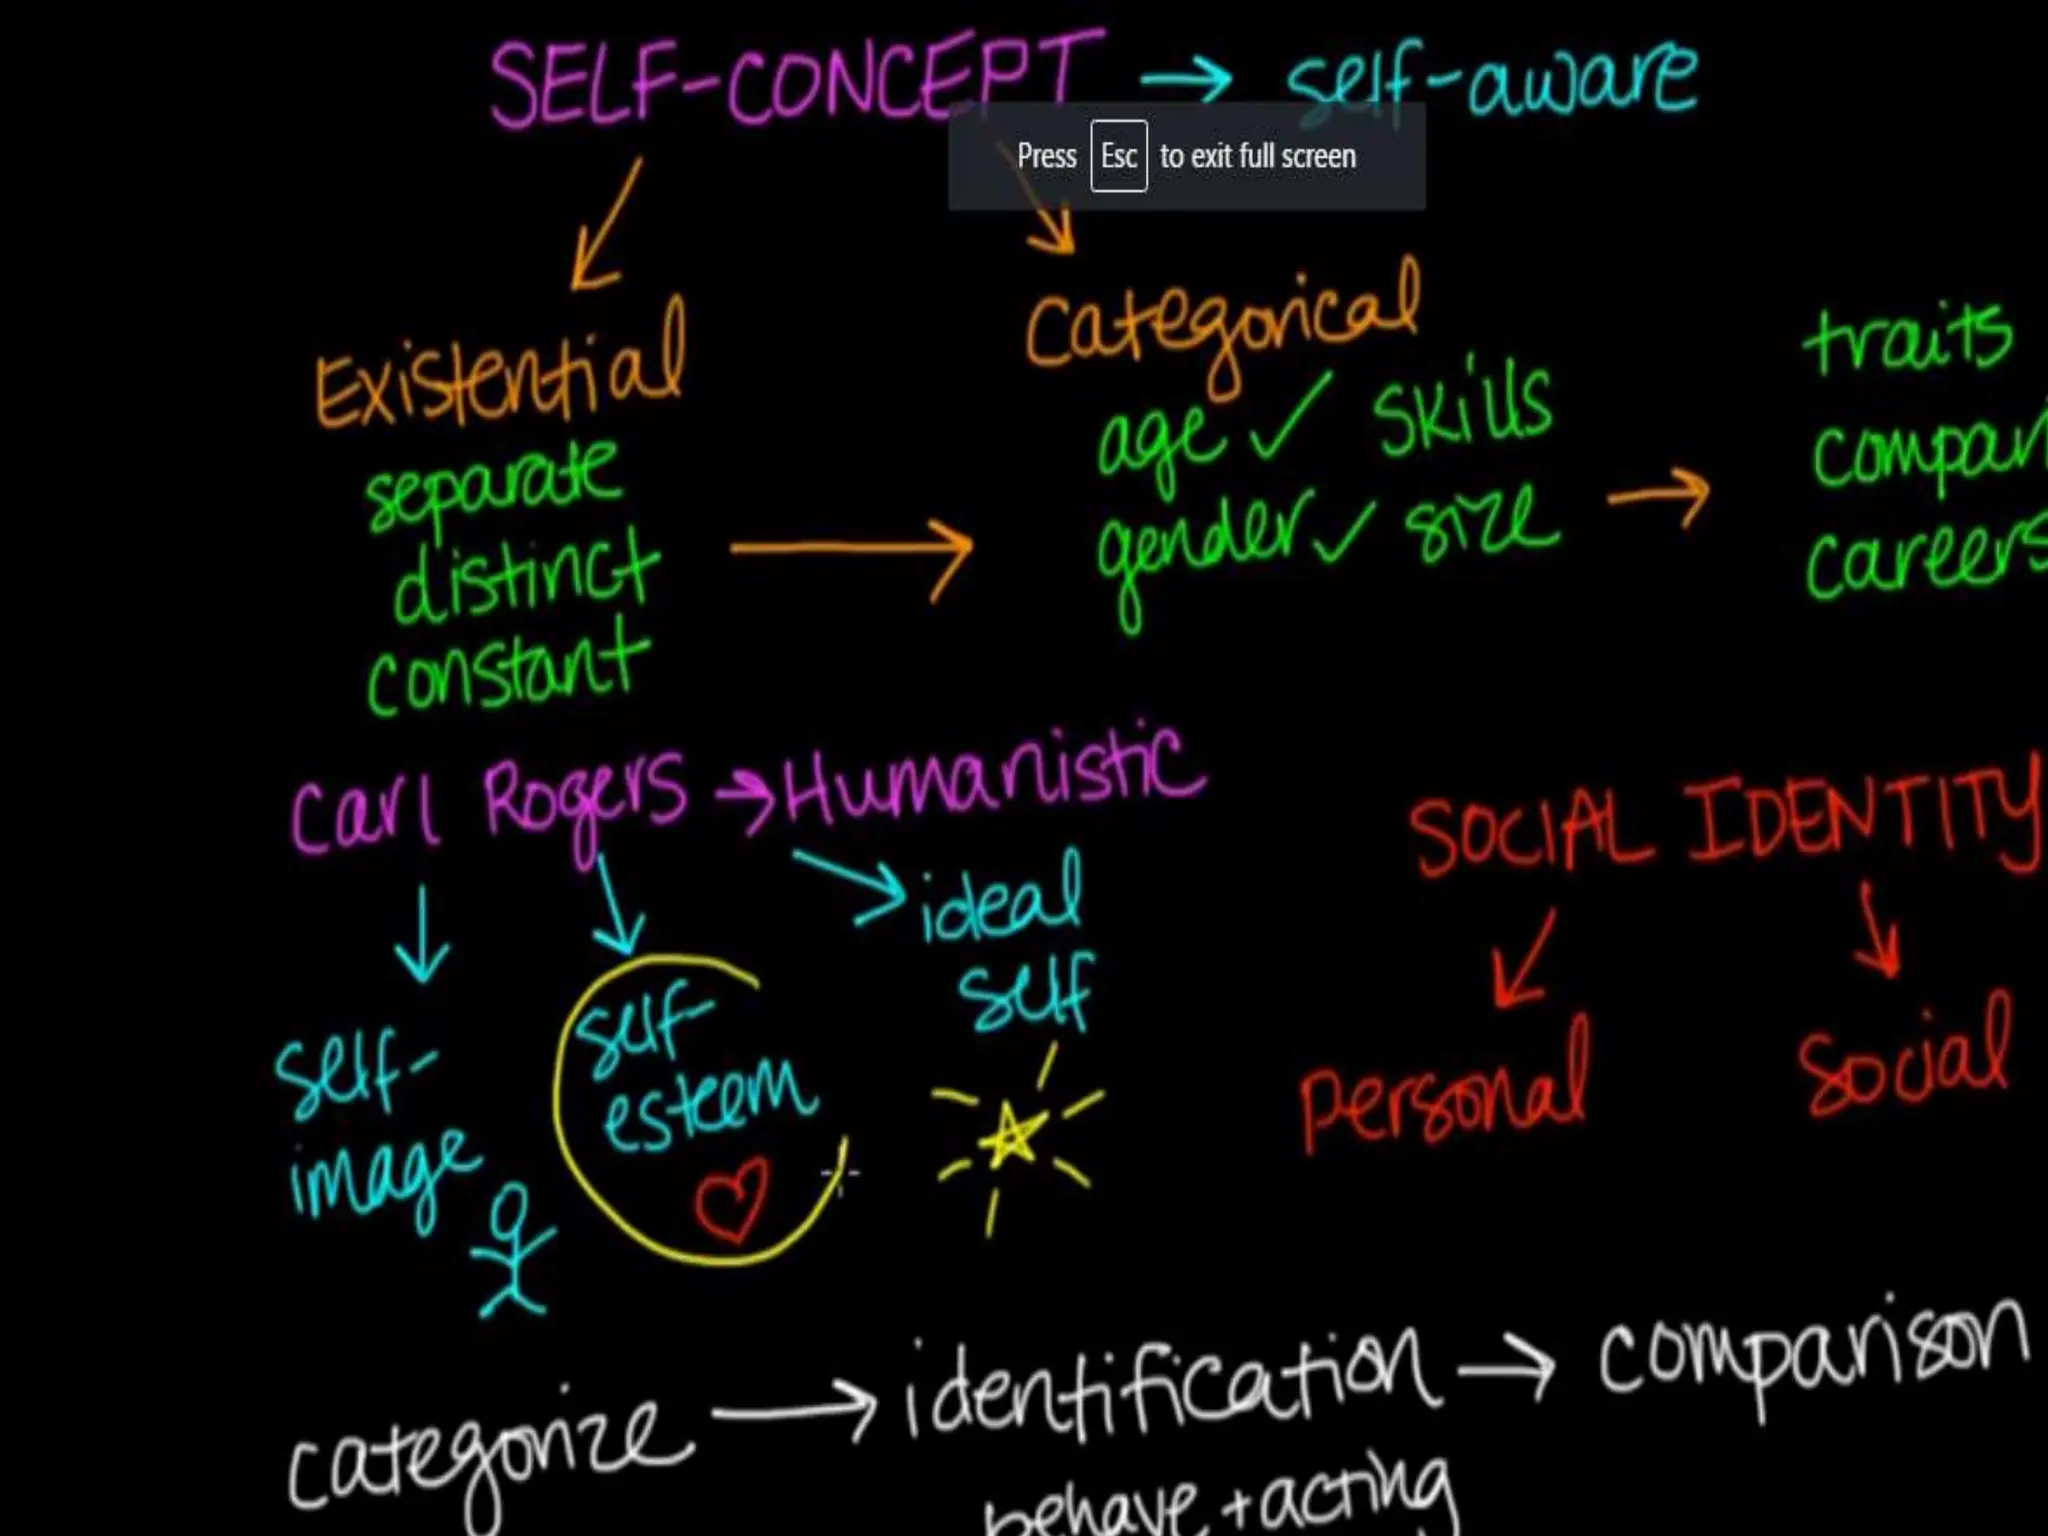 SELF-CONCEPT → self-aware
Press Esc to exit full screen
Existential
Categorical
separate
distinct
constant
age ✓ skills
gender ✓ size
→
→
traits
compari
careers
Carl Rogers → Humanistic
self-
image
self-
esteem
ideal
self
SOCIAL IDENTITY
personal
social
categorize → identification → comparison
behave + acting